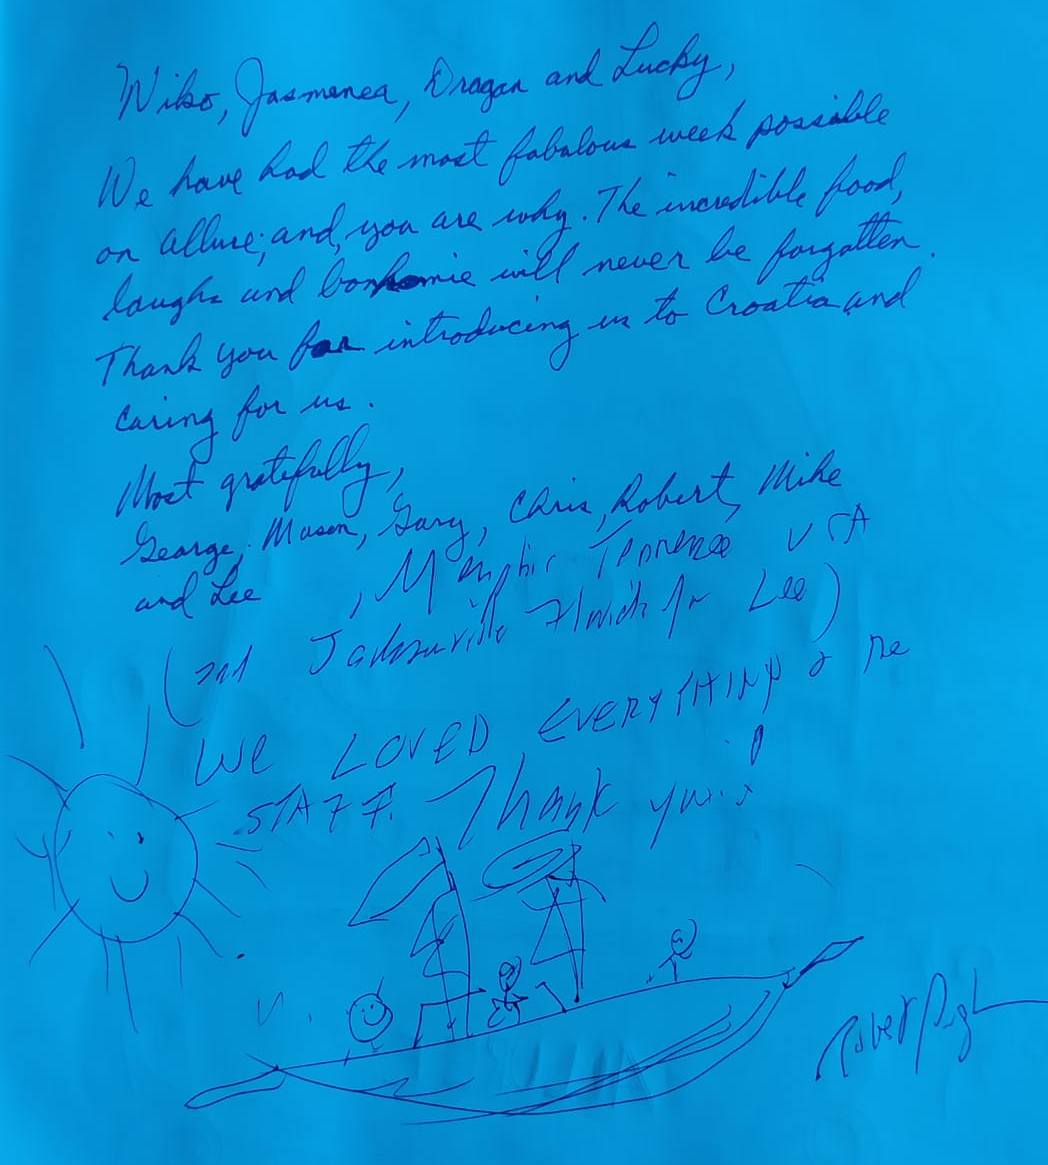 Niko, Jasmenea, Dragan and Lucky,
We have had the most fabalous week possible
on allure; and, you are why. The incredible food,
laughs and bonhomie will never be forgotten.
Thank you for introducing us to Croatia and
caring for us.
Most gratefully,
George, Mason, Gary, Chris, Robert, Mike
and Lee , Memphis Tennessee USA
(and Jacksonville Florida for Lee)
WE LOVED EVERYTHING & the
STAFF. Thank you!
Robert